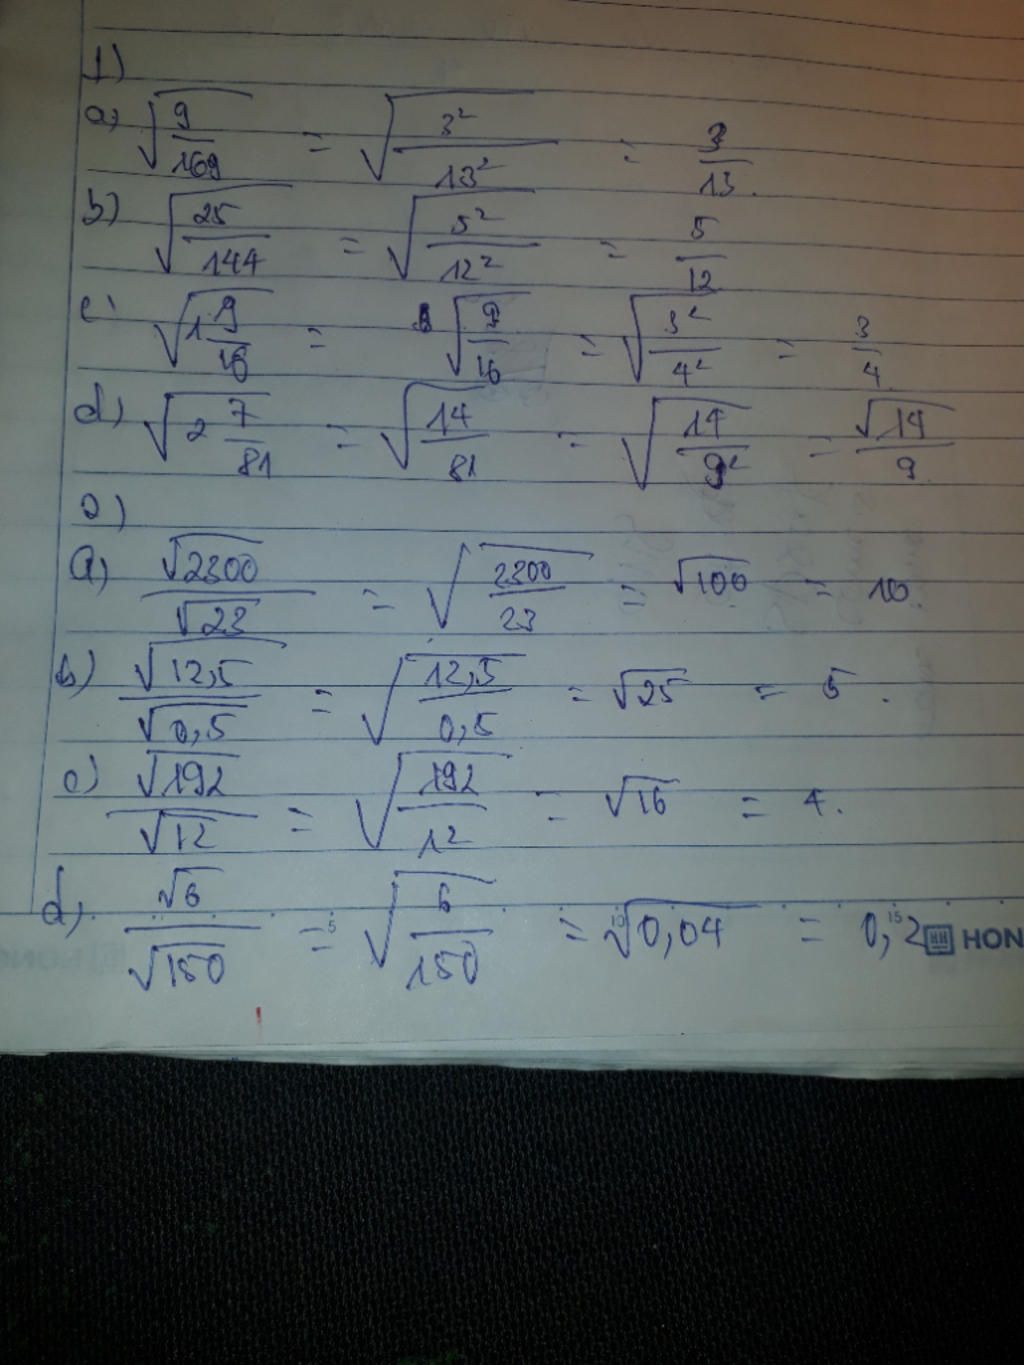 1)
a) √(9/169) = √(3²/13²) = 3/13.
b) √(25/144) = √(5²/12²) = 5/12
c) √(1 9/16) = √(9/16) = √(3²/4²) = 3/4
d) √(2 7/81) = √(14/81) = √(14/9²) = √14/9
2)
a) √2300/√23 = √(2300/23) = √100 = 10.
b) √12,5/√0,5 = √(12,5/0,5) = √25 = 5.
c) √192/√12 = √(192/12) = √16 = 4.
d) √6/√150 = √(6/150) = √0,04 = 0,2
5 10 15 HON